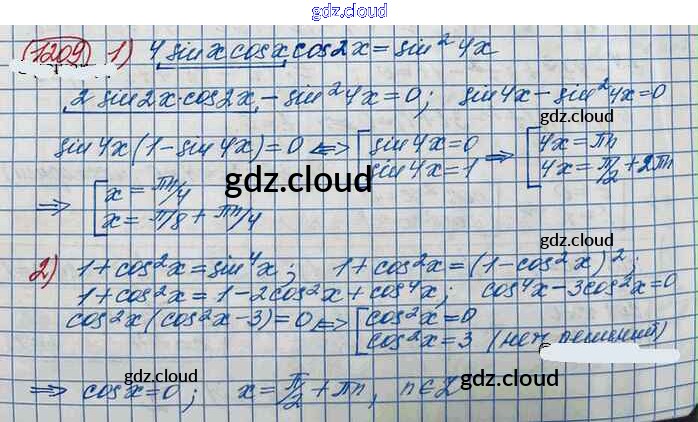 gdz.cloud
1209 1) 4 sin x cos x cos 2x = sin² 4x
2 sin 2x · cos 2x - sin² 4x = 0; sin 4x - sin² 4x = 0
sin 4x (1 - sin 4x) = 0 <=> [ sin 4x = 0 => [ 4x = πn
sin 4x = 1 4x = π/2 + 2πn
=> [ x = πn/4
x = π/8 + πn/4
gdz.cloud
gdz.cloud
gdz.cloud
2) 1 + cos² x = sin⁴ x; 1 + cos² x = (1 - cos² x)²;
1 + cos² x = 1 - 2cos² x + cos⁴ x; cos⁴ x - 3cos² x = 0
cos² x (cos² x - 3) = 0 <=> [ cos² x = 0
cos² x = 3 (нет решений)
=> cos x = 0; x = π/2 + πn, n ∈ Z
gdz.cloud
gdz.cloud
gdz.cloud